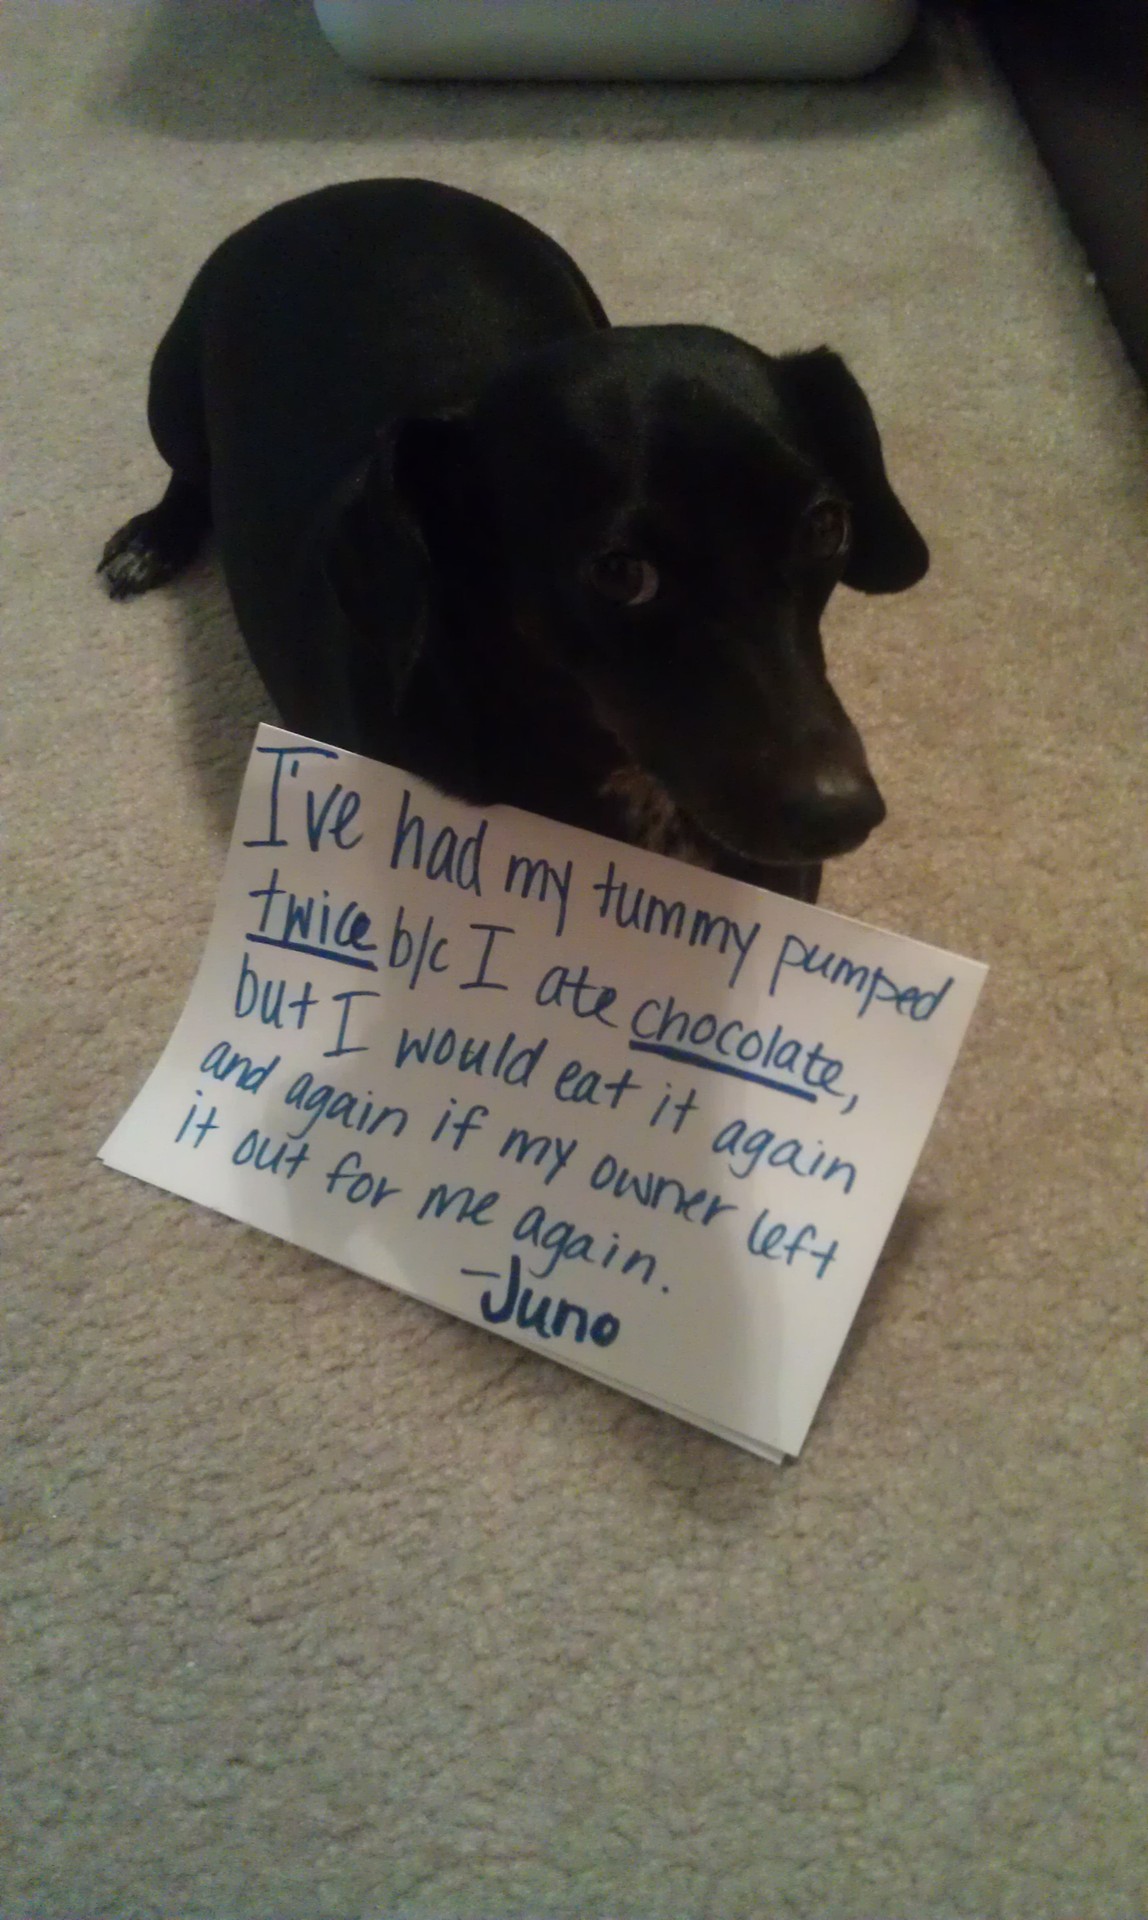 I've had my tummy pumped
twice b/c I ate chocolate,
but I would eat it again
and again if my owner left
it out for me again.
-Juno